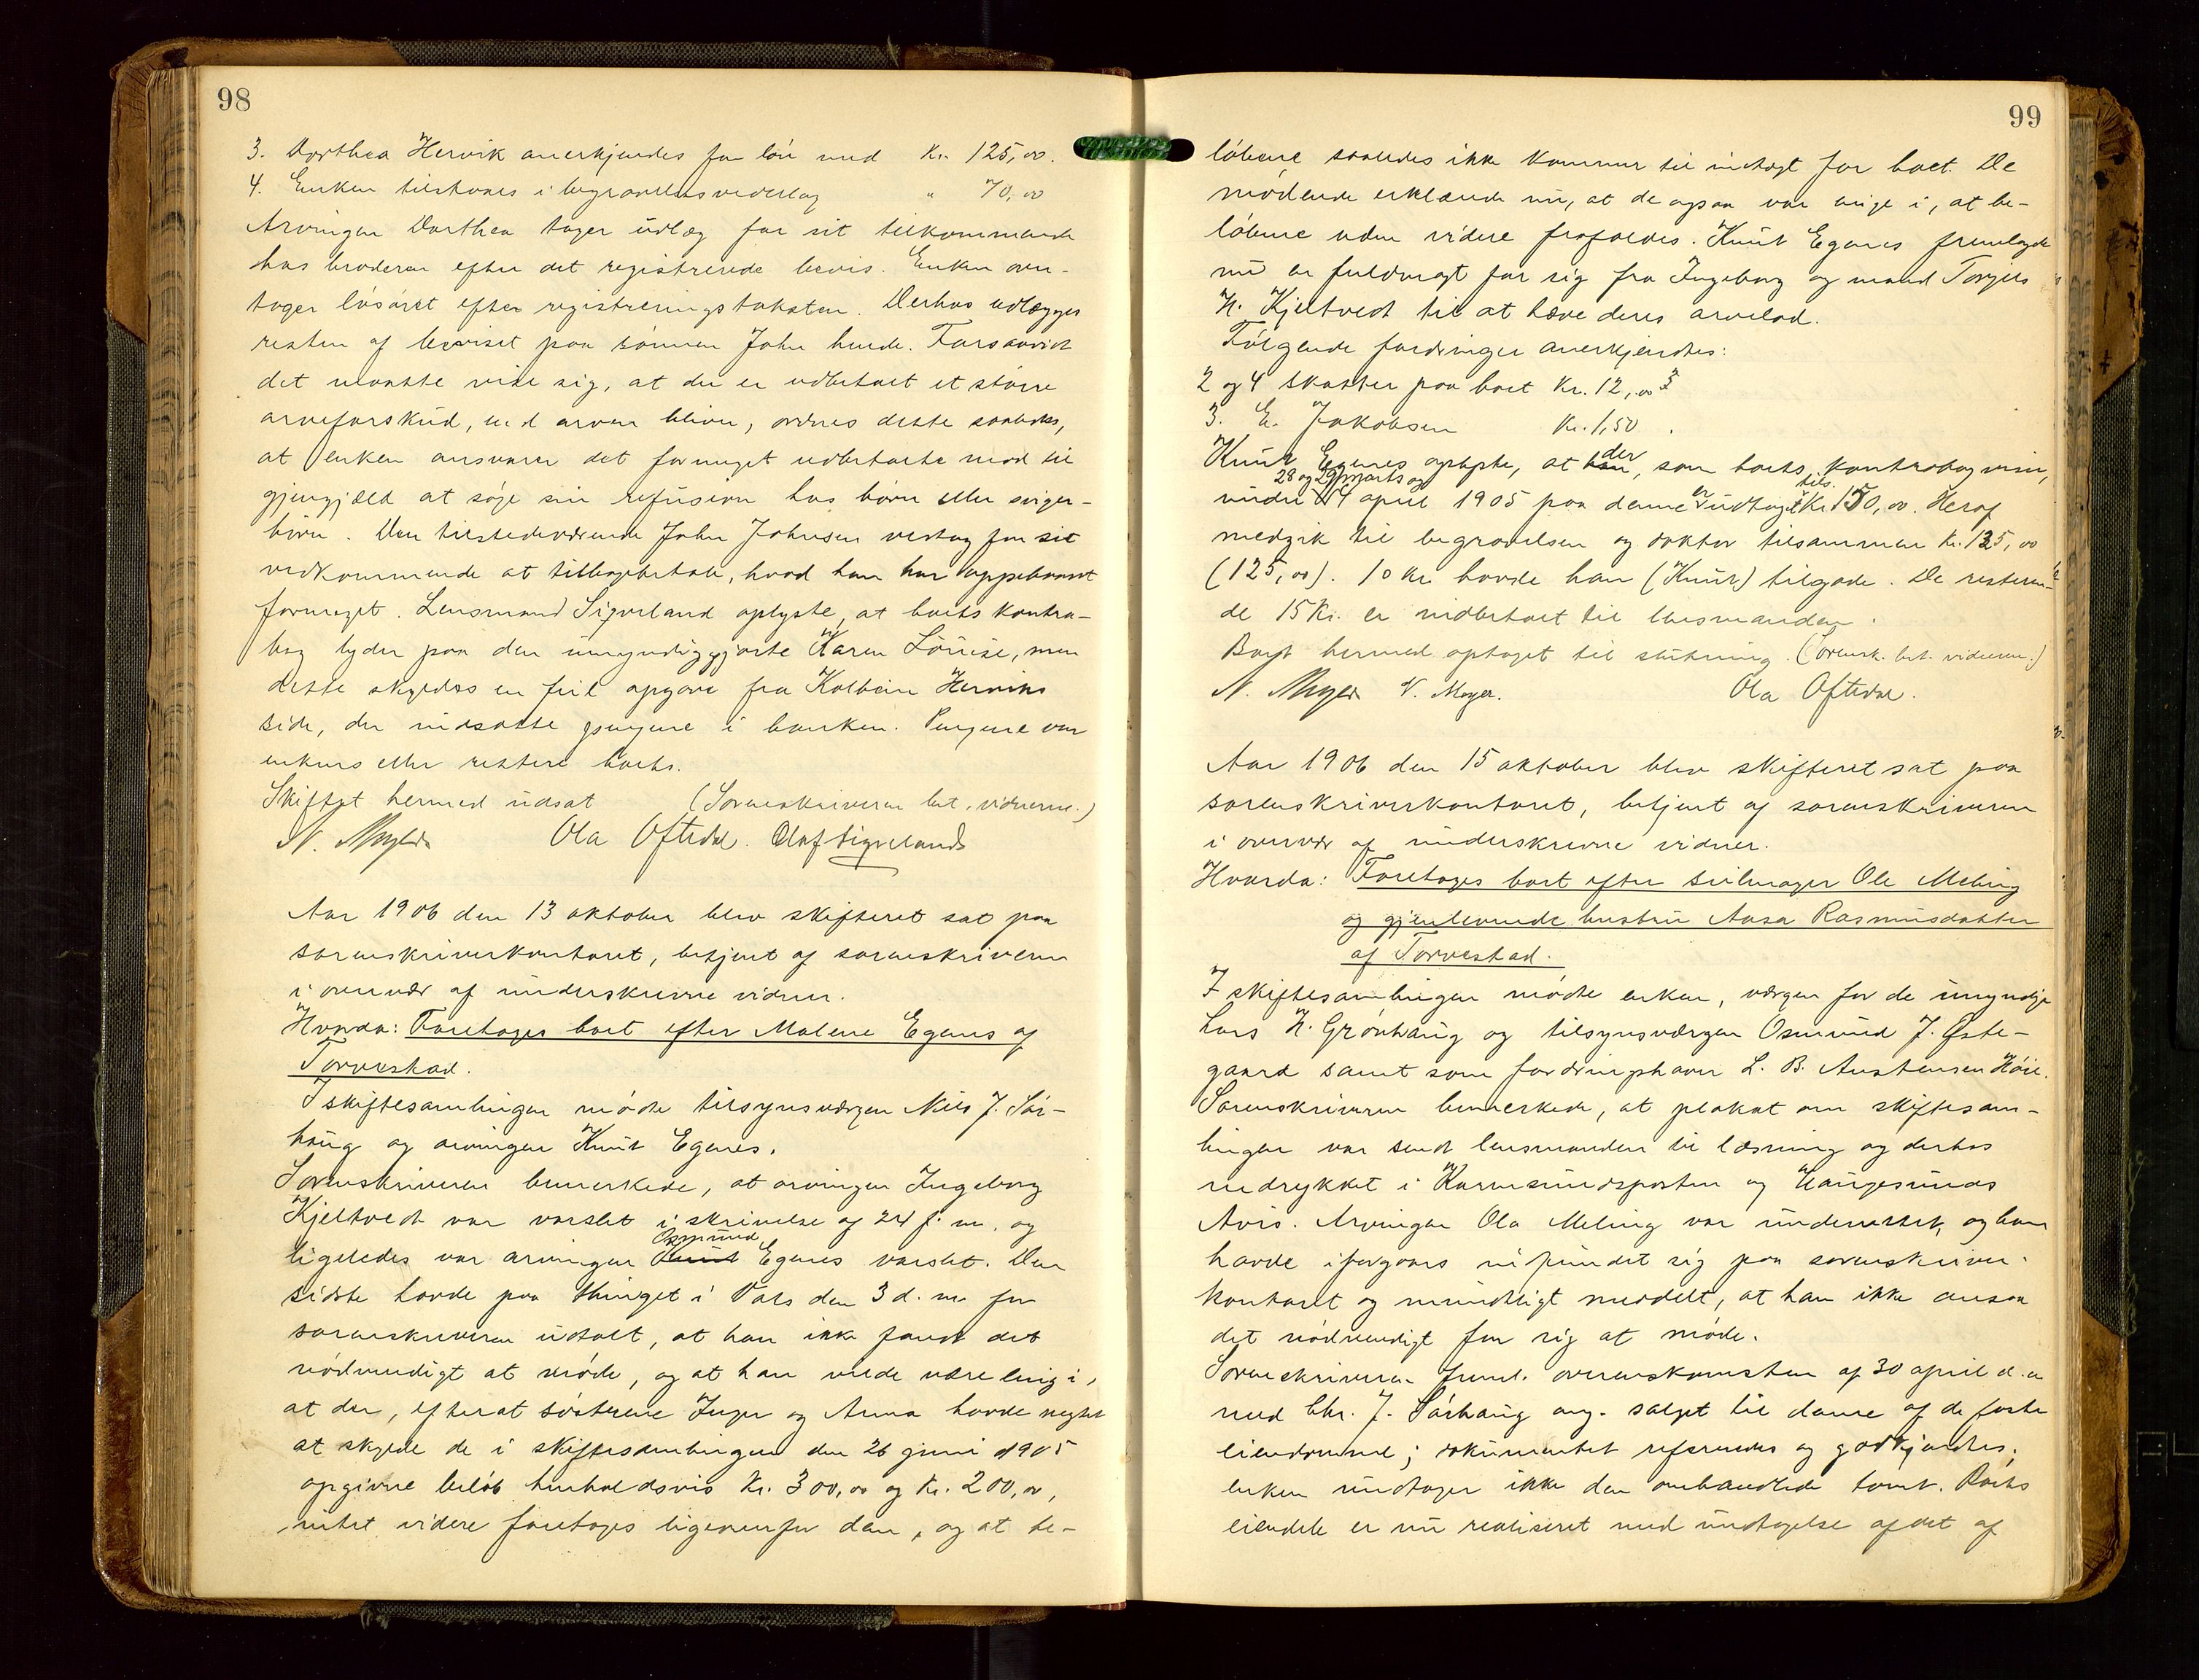 98
3. Dorthea Hervik anerkjendes for løn med Kr. 125,00.
4. Enken tilstaaes i begravelsesvederlag " 70,00
Arvingen Dorthea tager udlæg for sit tilkommende
hos broderen efter det registrerede bevis. Enken over-
tager løsøret efter registreringstaksten. Derhos udlægges
resten af beviset paa sønnen John hende. Forsaavidt
det maatte vise sig, at der er udbetalt et større
arveforskud, end arven bliver, ordnes dette saaledes,
at enken ansvarer det formeget udbetalte mod til
gjengjæld at søge sin refusion hos børn eller sviger-
børn. Den tilstedeværende John Johnsen vedtog for sit
vedkommende at tilbagebetale, hvad han har oppebaaret
formeget. Lensmand Sigveland oplyste, at boets kontra-
bog lyder paa den umyndiggjorte Karen Louise, men
dette skyldes en feil opgave fra Kolbein Herviks
side, der indsatte pengene i banken. Pengene var
enkens eller rettere boets.
Skiftet hermed udsat (Sorenskriveren bet. vidnerne.)
N. Meyer Ola Oftedal. Olaf Sigveland
Aar 1906 den 13 oktober blev skifteret sat paa
sorenskriverkontoret, betjent af sorenskriveren
i overvær af underskrevne vidner.
Hvorda: Foretages boet efter Malene Egenes af
Torvestad.
I skiftesamlingen mødte tilsynsværgen Nils J. Sør-
haug og arvingen Knut Egenes.
Sorenskriveren bemerkede, at arvingen Ingeborg
Kjeltvedt var varslet i skrivelse af 24 f. m. og
ligeledes var arvingen Knut Osmund Egenes varslet. Den
sidste havde paa thinget i Vats den 3 d. m. for
sorenskriveren udtalt, at han ikke fandt det
nødvendigt at møde, og at han vilde være enig i,
at der, efterat søstrene Inger og Anna havde negtet
at skylde de i skiftesamlingen den 26 juni 1905
opgivne beløb henholdsvis Kr. 300,00 og Kr. 200,00,
intet videre foretages ligeoverfor dem, og at be-
99
løbene saaledes ikke kommer til indtægt for boet. De
mødende erklærede nu, at de ogsaa var enige i, at be-
løbene uden videre frafaldes. Knut Egenes fremlagde
nu en fuldmagt for sig fra Ingeborg og mand Torjus
N. Kjeltvedt til at hæve deres arvelod.
Følgende fordringer anerkjendtes:
2 og 4 skatter paa boet Kr. 12,00
3. E. Jakobsen Kr. 1,50.
Knut Egenes oplyste, at han der, som boets kontrabog viser,
under 28 og 29 marts og 4 april 1905 paa denne er udtaget tils. Kr. 150,00. Heraf
medgik til begravelsen og doktor tilsammen Kr. 125,00
(125,00). 10 Kr. havde han (Knut) tilgode. De resteren-
de 15 Kr. er indbetalt til lensmanden.
Boet hermed optaget til slutning. (Sorensk. bet. vidnerne.)
N. Meyer V. Meyer. Ola Oftedal.
Aar 1906 den 15 oktober blev skifteret sat paa
sorenskriverkontoret, betjent af sorenskriveren
i overvær af underskrevne vidner.
Hvorda: Foretages boet efter seilmager Ole Meling
og gjenlevende hustru Aasa Rasmusdatter
af Torvestad.
I skiftesamlingen mødte enken, værgen for de umyndige
Lars N. Grønhaug og tilsynsværgen Osmund J. Øste-
gaard samt som fordringshaver L. B. Austensen Høie.
Sorenskriveren bemerkede, at plakat om skiftesam-
lingen var sendt lensmanden til læsning og derhos
indrykket i Karmsundsposten og Haugesunds
Avis. Arvingen Ola Meling var underrettet, og han
havde iforgaars indfundet sig paa sorenskriver-
kontoret og mundtligt meddelt, at han ikke ansaa
det nødvendigt for sig at møde.
Sorenskriveren freml. overenskomsten af 30 april d. a
med Chr. J. Sørhaug ang. salget til denne af de faste
eiendomme; dokumentet refereredes og godkjendtes;
enken undtager ikke den omhandlede tomt. Boets
eiendele er nu realiseret med undtagelse af det af